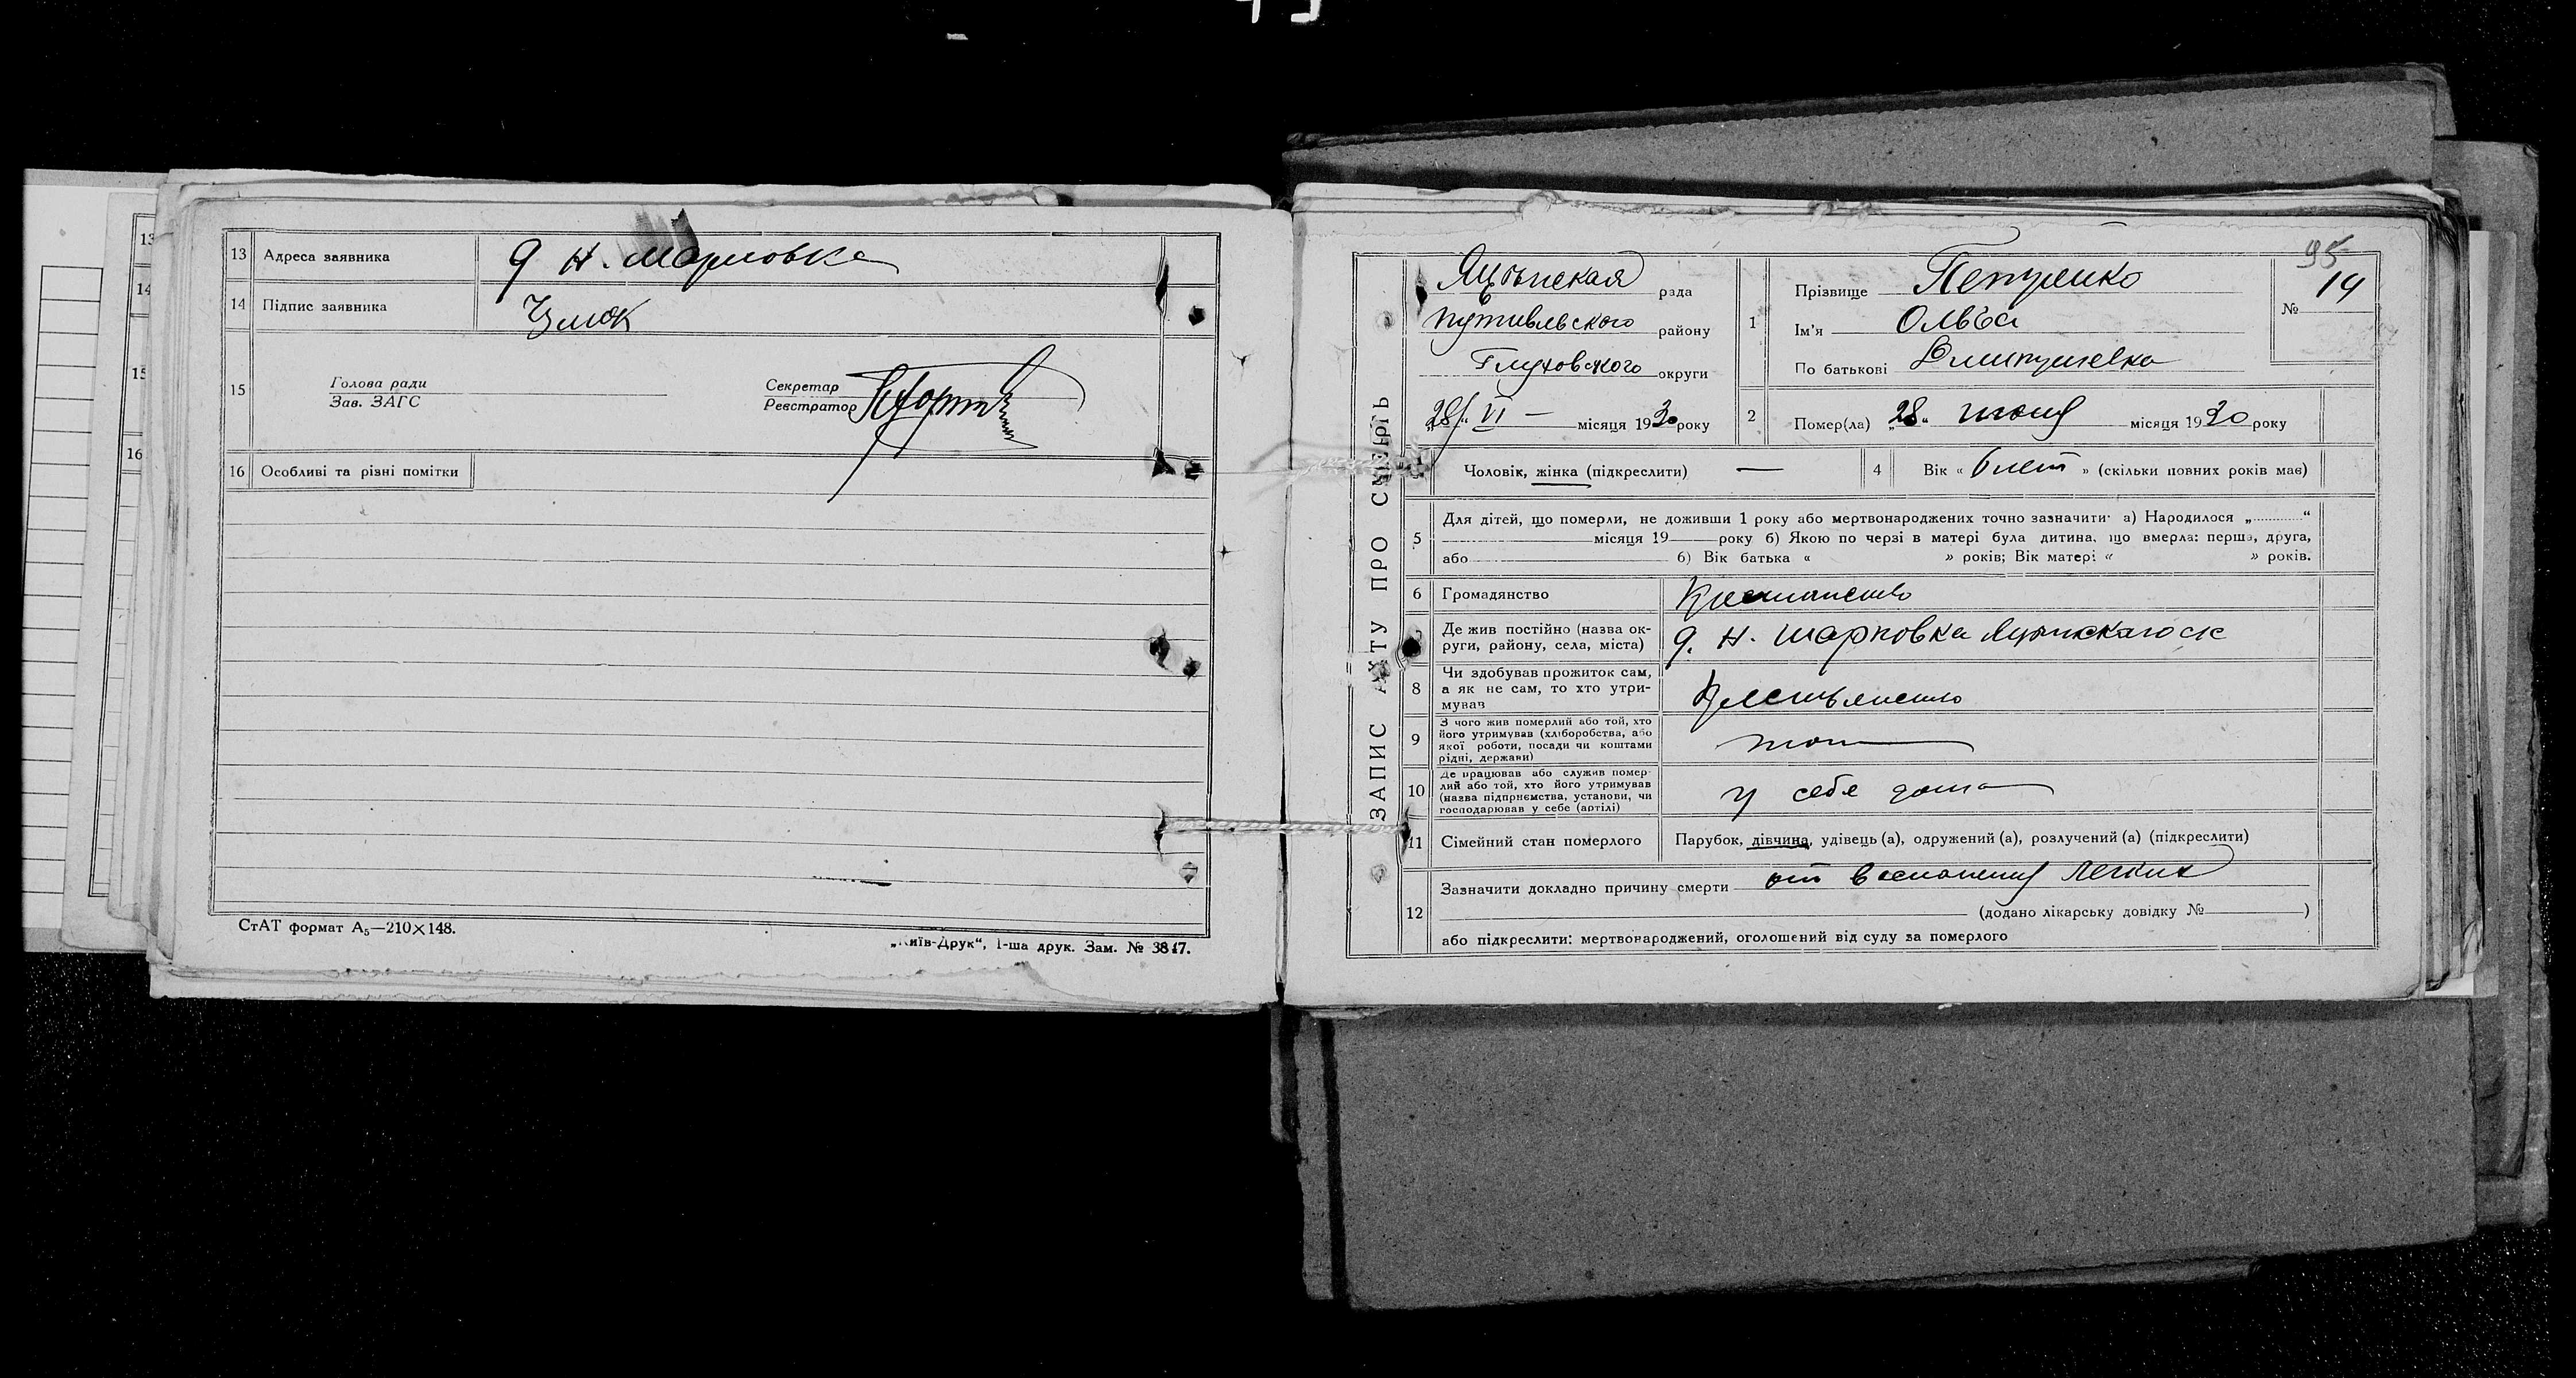 13 Адреса заявника
14 Підпис заявника
15 Голова ради
Зав. ЗАГС
Секретар
Реєстратор
16 Особливі та різні помітки
СтАТ формат А5—210×148.
„Київ-Друк“, 1-ша друк. Зам. № 3817.
13
14
15
16
95
ЗАПИС АКТУ ПРО СМЕРТЬ
рада
Путивльского району
Глуховского округи
„28“ VI — місяця 1930 року
1 Прізвище Петренко
Ім'я Ольга
По батькові
№ 14
2 Помер(ла) „28“ июня місяця 1930 року
Чоловік, жінка (підкреслити) —
4 Вік « 6 лет » (скільки повних років має)
5 Для дітей, що померли, не доживши 1 року або мертвонароджених точно зазначити: а) Народилося „ “
місяця 19 року б) Якою по черзі в матері була дитина, що вмерла: перша, друга,
або б) Вік батька « » років; Вік матері « » років.
6 Громадянство
7 Де жив постійно (назва ок-
руги, району, села, міста)
д. Н. Шарповка
8 Чи здобував прожиток сам,
а як не сам, то хто утри-
мував
9 З чого жив померлий або той, хто
його утримував (хліборобства, або
якої роботи, посади чи коштами
рідні, держави)
10 Де працював або служив помер-
лий або той, хто його утримував
(назва підприємства, установи, чи
господарював у себе (артілі)
у себе дома
11 Сімейний стан померлого
Парубок, дівчина, удівець (а), одружений (а), розлучений (а) (підкреслити)
12 Зазначити докладно причину смерти от воспаления легких
(додано лікарську довідку № )
або підкреслити: мертвонароджений, оголошений від суду за померлого